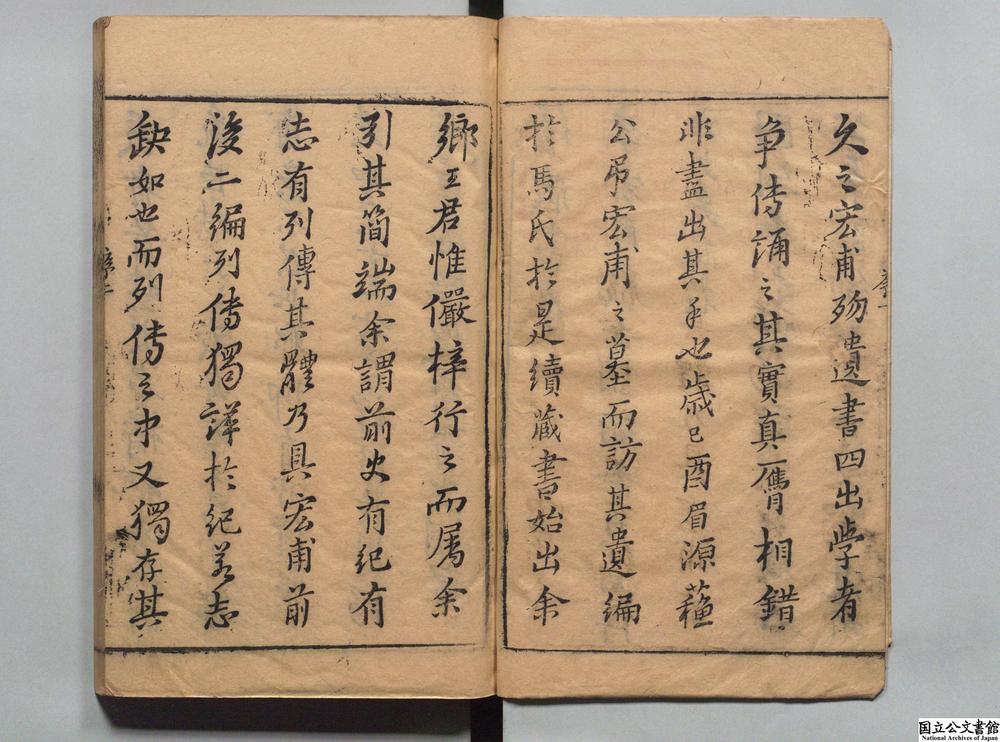 久之宏甫歿遺書四出學者
争傳誦之其實真贋相錯
非盡出其手也歳己酉眉源蘓
公吊宏甫之墓而訪其遺編
於馬氏於是續藏書始出余
鄉王君惟儼梓行之而属余
引其簡端余謂前史有紀有
志有列傳其體乃具宏甫前
後二編列傳獨詳於紀若志
缺如也而列傳之中又獨存其
序一
国立公文書館
National Archives of Japan